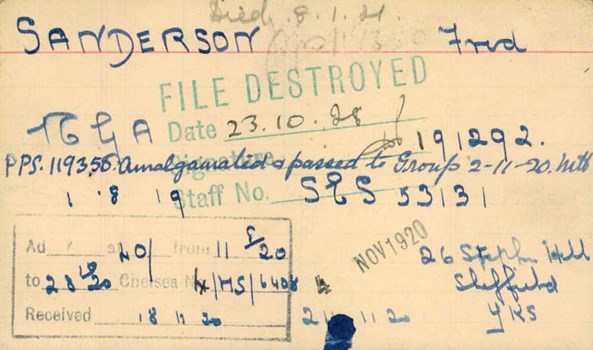 Died. 8.1.21.
SANDERSON Fred
FILE DESTROYED
RGA Date 23.10.28 191292.
PPS. 119356. Amalgamated & passed to Group 2-11-20.
Signature
1 8 19 Staff No. S&S 53131
NOV 1920
Ad at 40/ from 11 20
26 Stephen Hill
to 28 20 Chelsea N /MS/6408 4
Sheffield
YKS
Received 18 11 20 2 11 20